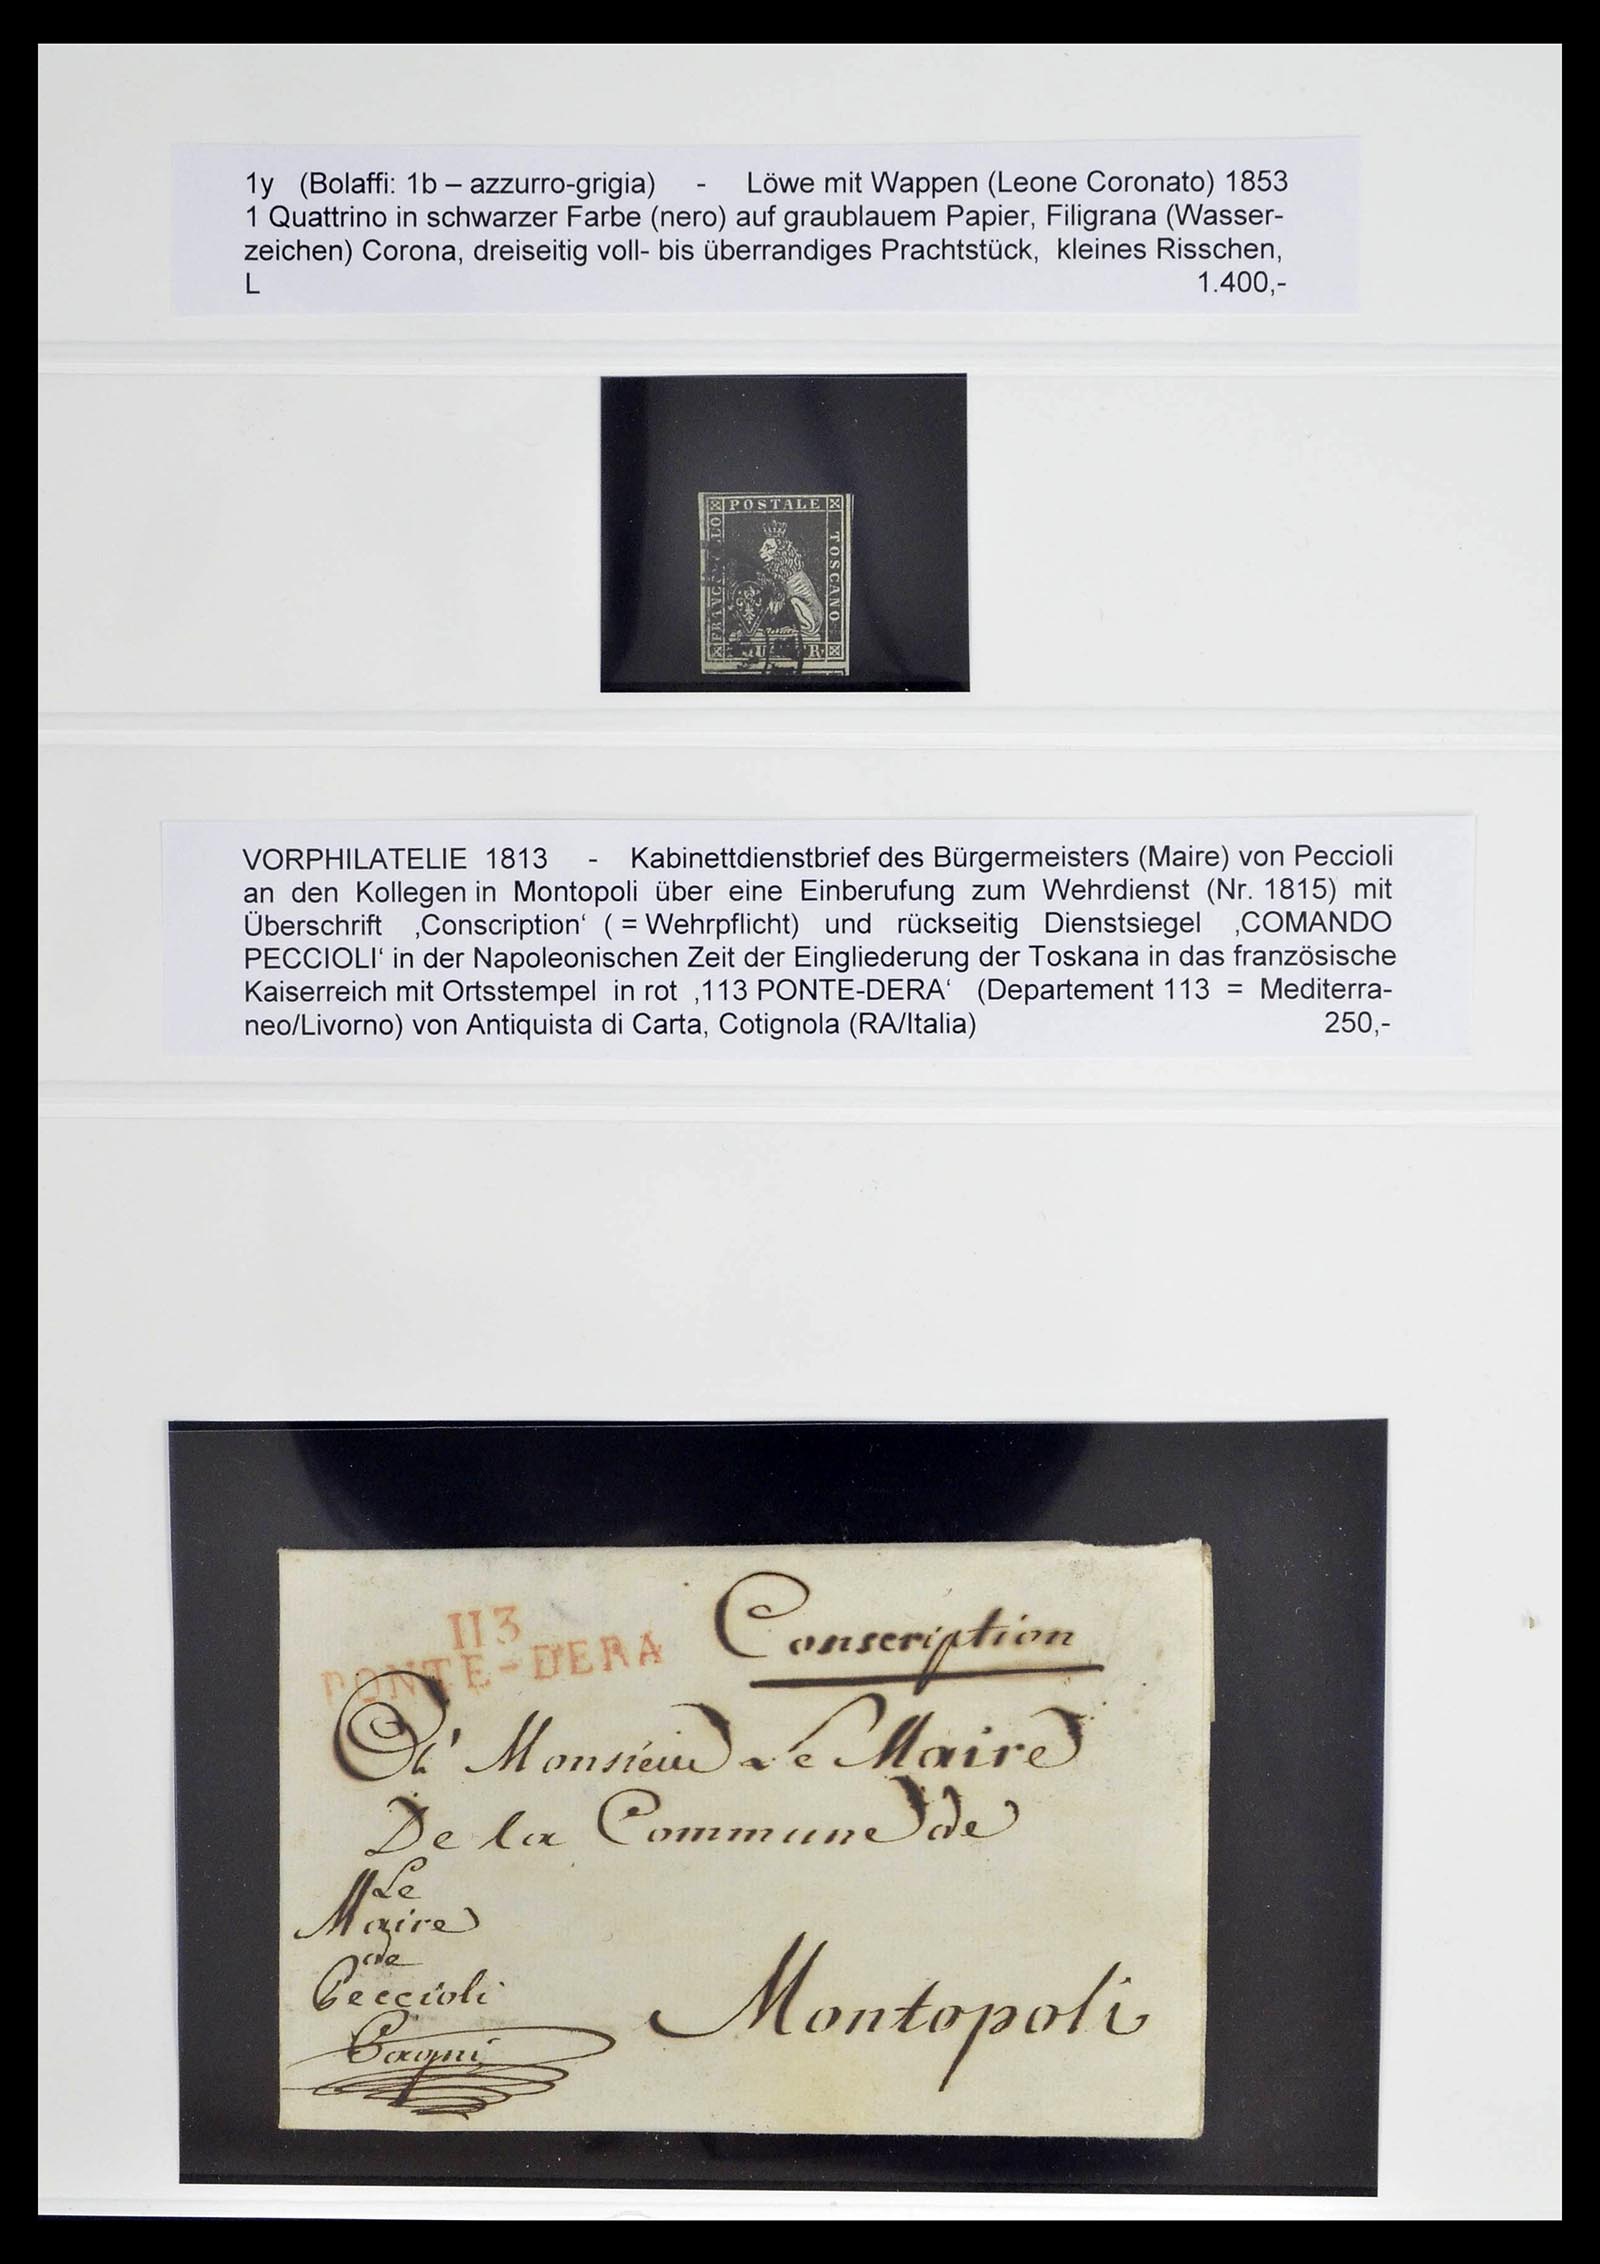 1y (Bolaffi: 1b – azzurro-grigia) - Löwe mit Wappen (Leone Coronato) 1853
1 Quattrino in schwarzer Farbe (nero) auf graublauem Papier, Filigrana (Wasser-
zeichen) Corona, dreiseitig voll- bis überrandiges Prachtstück, kleines Risschen,
L 1.400,-
POSTALE
TOSCANO
VORPHILATELIE 1813 - Kabinettdienstbrief des Bürgermeisters (Maire) von Peccioli
an den Kollegen in Montopoli über eine Einberufung zum Wehrdienst (Nr. 1815) mit
Überschrift ‚Conscription‘ ( = Wehrpflicht) und rückseitig Dienstsiegel ‚COMANDO
PECCIOLI‘ in der Napoleonischen Zeit der Eingliederung der Toskana in das französische
Kaiserreich mit Ortsstempel in rot ‚113 PONTE-DERA‘ (Departement 113 = Mediterra-
neo/Livorno) von Antiquista di Carta, Cotignola (RA/Italia) 250,-
113
PONTE-DERA
Conscription
A' Monsieur Le Maire
De la Commune de
Le
Maire
de
Peccioli
Montopoli